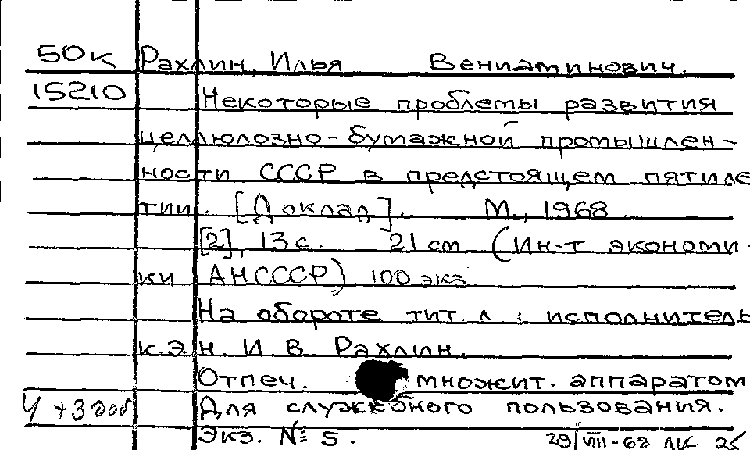 50к Рахлин, Илья Вениаминович.
15210 Некоторые проблемы развития
целлюлозно-бумажной промышлен-
ности СССР в предстоящем пятиле
тии. [Доклад]. М., 1968
[2], 13 с. 21 см (Ин-т экономи-
ки АН СССР) 100 экз.
На обороте тит. л : исполнитель
к.э.н. И В. Рахлин.
Отпеч. множит. аппаратом
Для служебного пользования.
Экз. № 5.